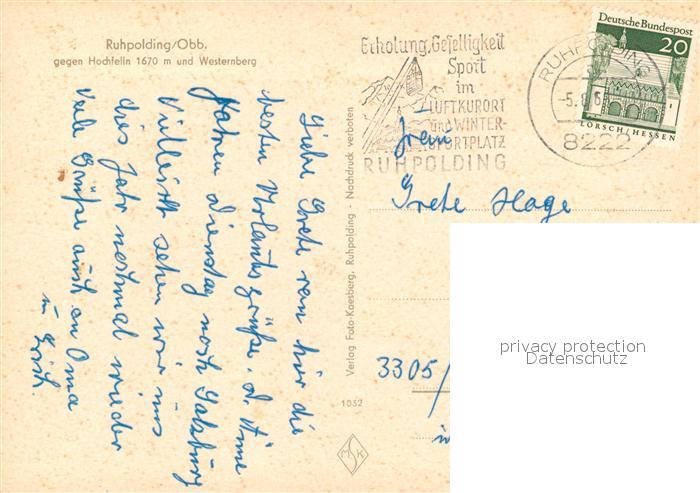 Ruhpolding/Obb.
gegen Hochfelln 1670 m und Westernberg
Liebe Grete
hier die
besten Urlaubsgrüße.
Fahren Dienstag nach Salzburg
Vielleicht sehen wir uns
dies Jahr nochmal wieder
Viele Grüße auch an Oma
u. Erich.
Verlag Foto-Kaesberg, Ruhpolding · Nachdruck verboten
1032
MSK
Erholung, Geselligkeit
Sport
im
LUFTKURORT
und WINTER-
SPORTPLATZ
RUHPOLDING
RUHPOLDING
-5.8.6
8222
Deutsche Bundespost
20
LORSCH/HESSEN
Frau
Grete Hage
3305/
privacy protection
Datenschutz